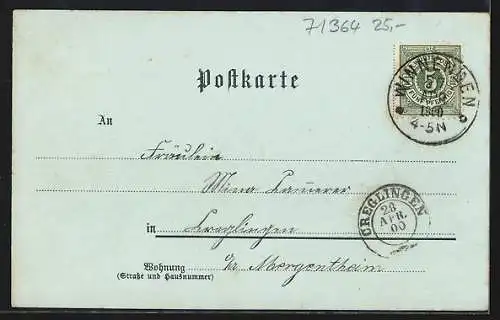 71364 25,-
Postkarte
5
FÜNF PFENNIG
WINNENDEN
4-5N
An
Fräulein
Mina
in Creglingen
CREGLINGEN
28
APR.
00
Wohnung
(Straße und Hausnummer)
Mergentheim